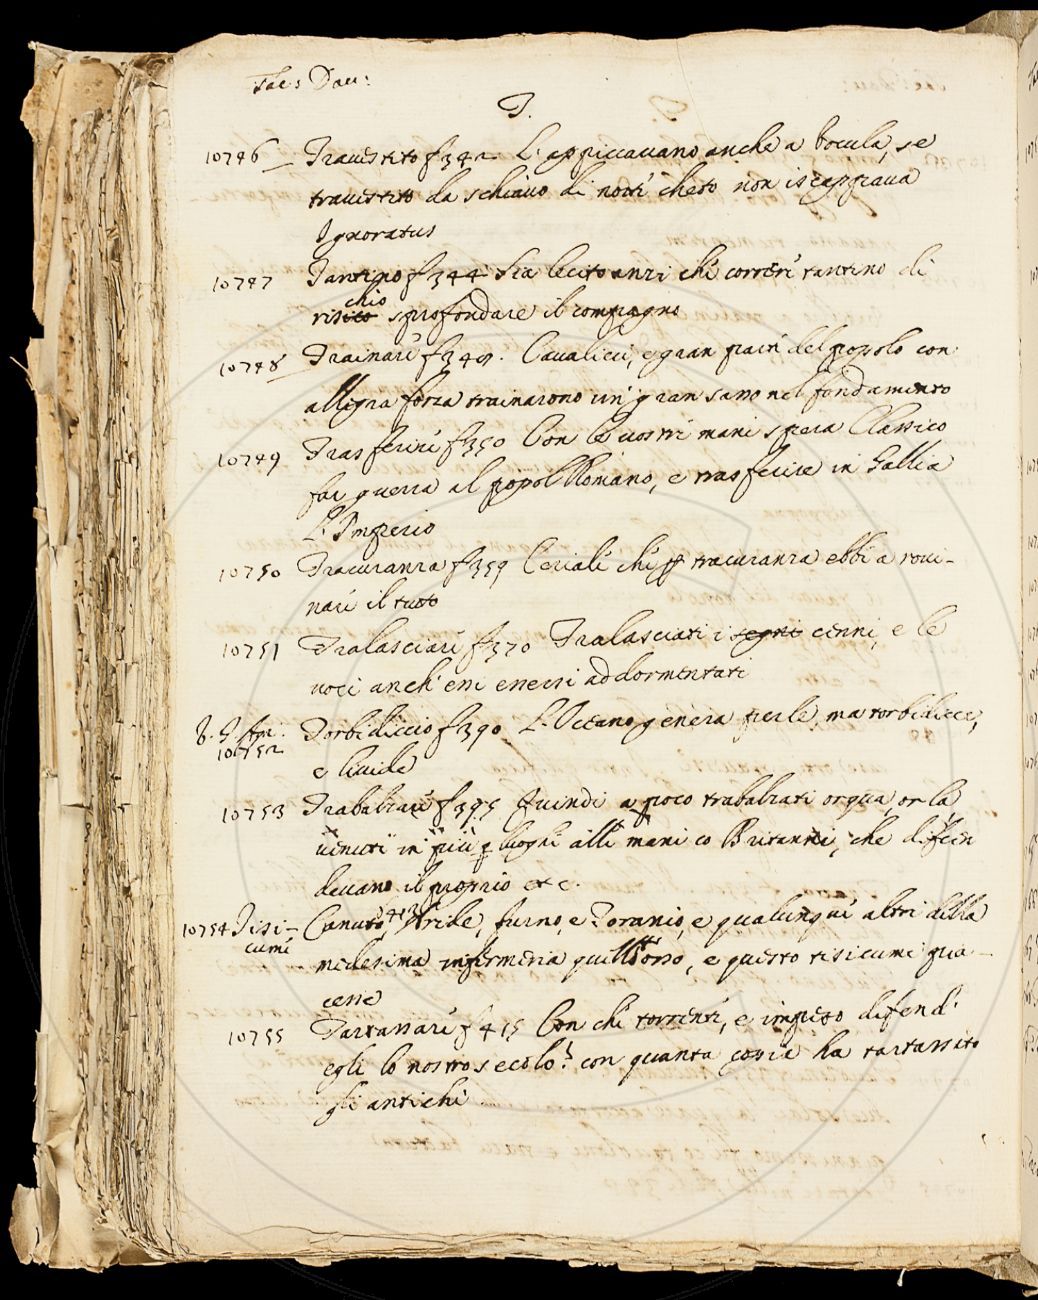 Tac: Dav:
T.
10746 Travestito f 342 L'appiccavano anche a bocula, se
travestito da schiavo di notti cheto non iscappava
Ignoratus
10747 Tantino f 344 Sia lecito anzi chi correri tantino di
chio
risico sprofondare il compagno
10748 Trainari f 349. Cavalieri, e gran parti del popolo con
allegra forza trainarono un gran sasso nel fondamento
10749 Trasferiri f 350 Con le vostri mani spera Classico
far guerra al popol Romano, e trasferire in Gallia
L'Imperio
10750 Tracuranza f 359 Ceriali chi p tracuranza ebbi a rovi-
nari il tutto
10751 Tralasciari f 370 Tralasciati i segni cenni, e le
voci anch' essi enersi addormentati
10752 Torbidiccio f 390 L'Oceano genera perle, ma torbidicce,
e livide
10753 Trabalzari f 395 Quindi a poco trabalzati or qua, or là,
venuti in più luoghi alli mani co Britanni, che difen
devano il proprio etc.
10754 Tisi- Canuto, Aride, Furno, e Toranio, e qualunqui altri della
cumi
medesima infermeria quell' orso, e questo tisicumi gua
cessi
10755 Tartassari f 415 Con chi torrenti, e impeto difend'
egli lo nostro secolo? con quanta copia ha tartassato
gli antichi